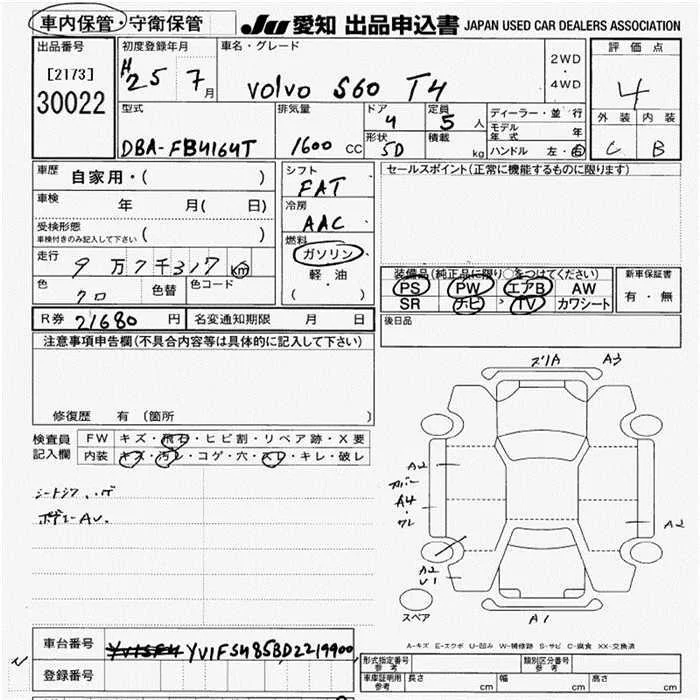 車内保管・守衛保管 JU 愛知 出品申込書 JAPAN USED CAR DEALERS ASSOCIATION
出品番号 初度登録年月 車名・グレード 2WD・4WD 評価点
[2173]
30022
H25 7月 Volvo S60 T4 4
型式 排気量 ドア 4 定員 5人 ディーラー・並行 外装 内装
DBA-FB4164T 1600CC 形状 5D 積載 kg モデル年式 年
ハンドル 左・右 C B
車歴 自家用・( ) シフト FAT セールスポイント(正常に機能するものに限ります)
車検 年 月( 日) 冷房 AAC
受検形態 ( )
車検付きのみ記入して下さい
燃料 ガソリン
軽・油
( )
走行 9万7千317km
色 クロ 色替 色コード
装備品(純正品に限り○をつけてください) 新車保証書
PS PW エアB AW 有・無
SR ナビ TV カワシート
R券 21680円 名変通知期限 月 日 後日品
注意事項申告欄(不具合内容等は具体的に記入して下さい)
修復歴 有 〔箇所 〕
検査員記入欄 FW キズ・飛石・ヒビ割・リペア跡・X要
内装 キズ・汚レ・コゲ・穴・スレ・キレ・破レ
A3
A2
A4
A2
A2
U1
スペア
A1
A-キズ E-エクボ U-凹み W-補修跡 S-サビ C-腐食 XX-交換済
車台番号 YV1FS485BD2219900
登録番号
形式指定番号 参考 類別区分番号 参考
車庫証明用 参考 長さ cm 幅 cm 高さ cm